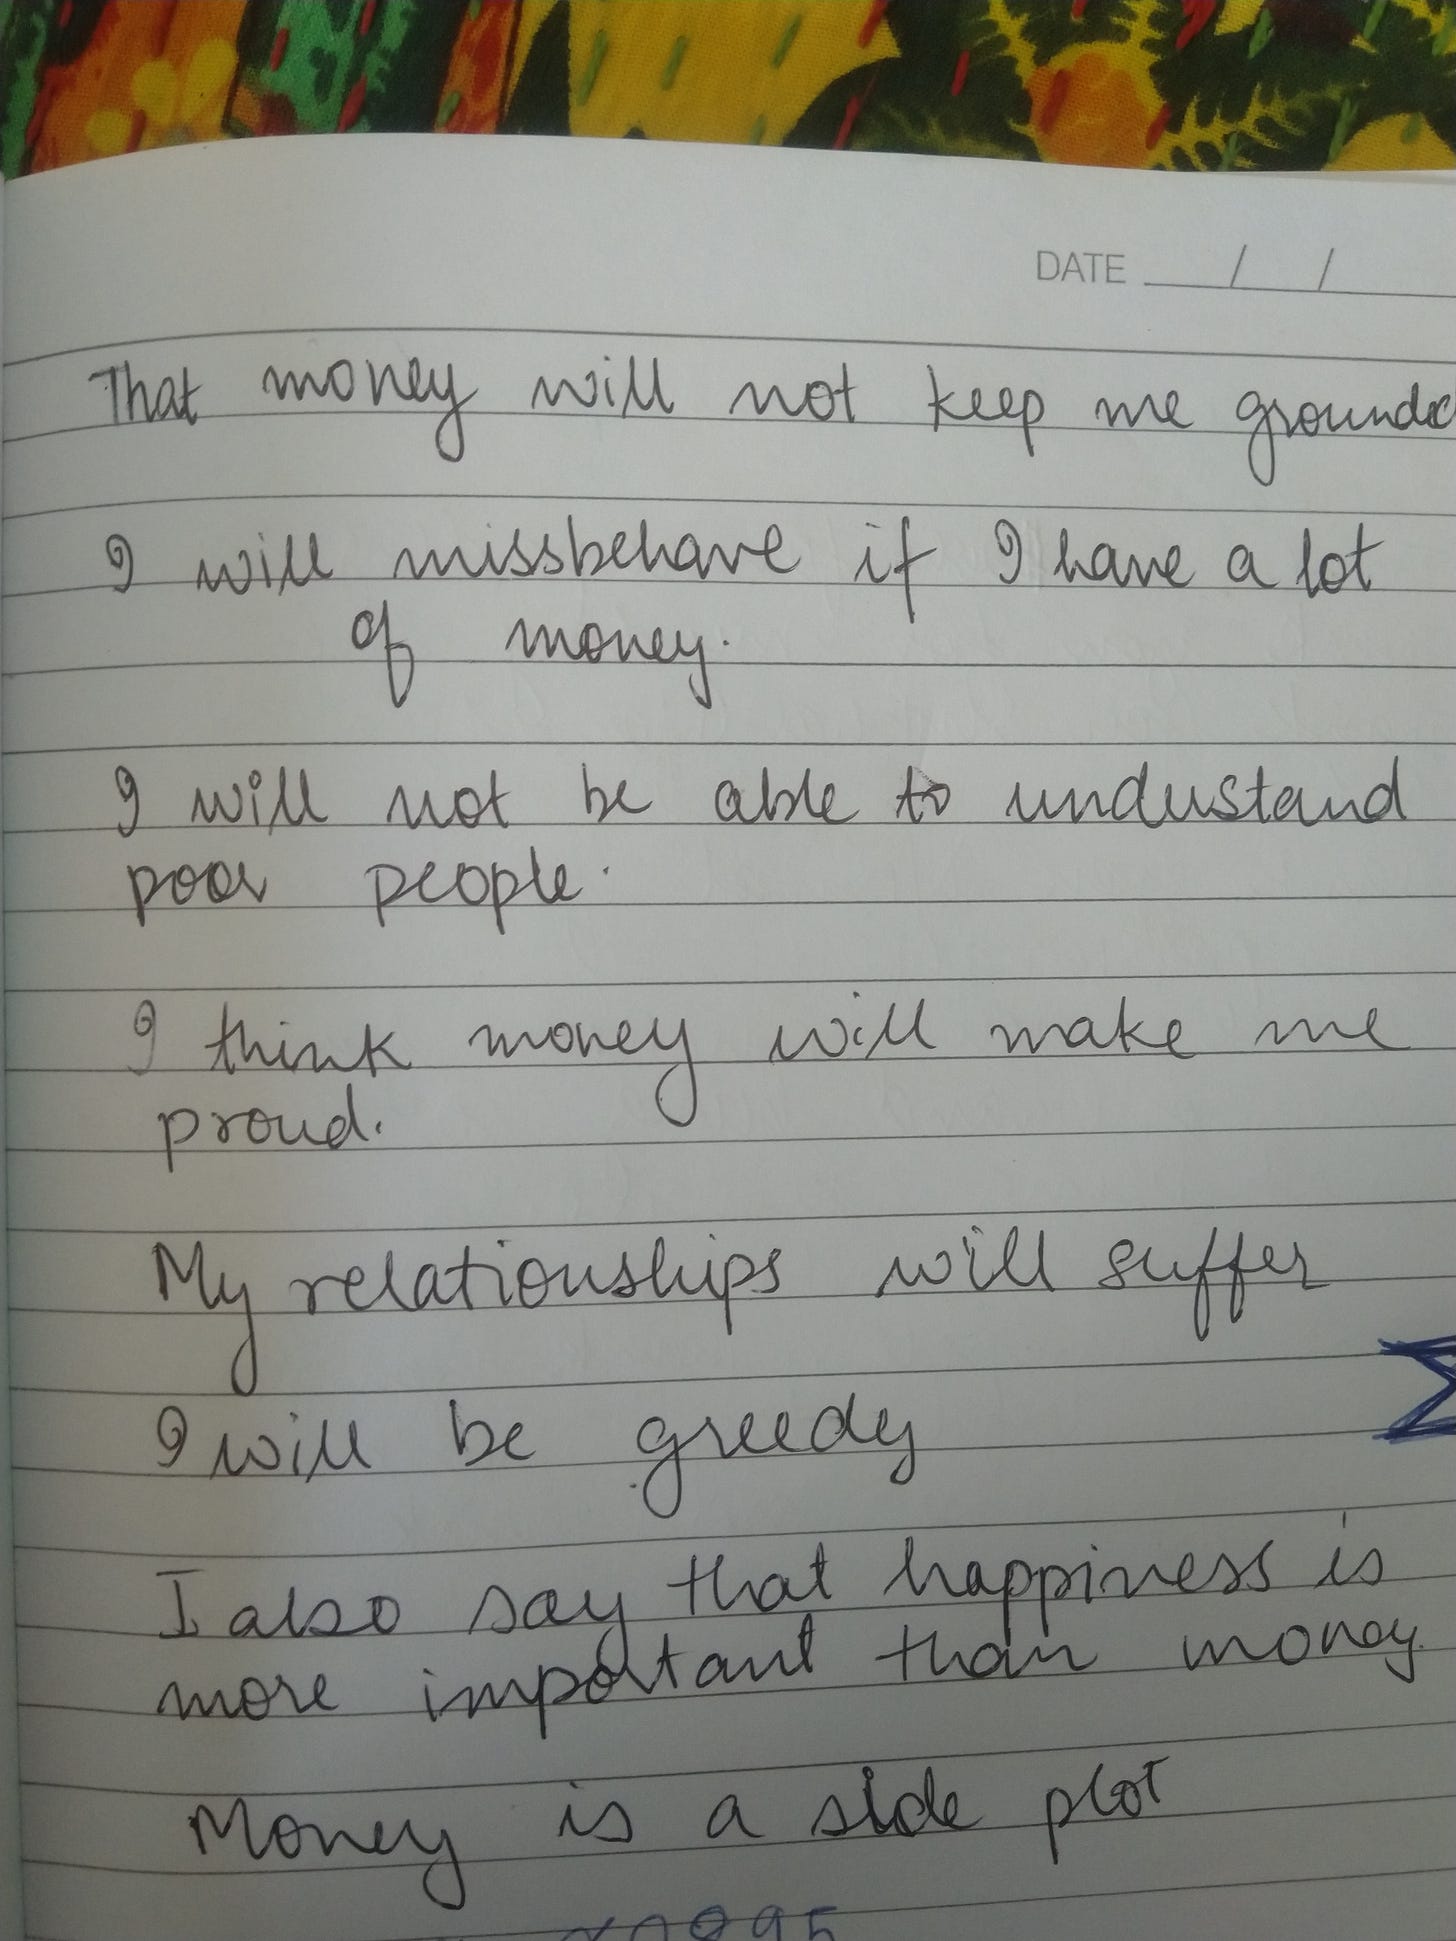 DATE / /
That money will not keep me grounded
I will missbehave if I have a lot
of money.
I will not be able to understand
poor people.
I think money will make me
proud.
My relationships will suffer
I will be greedy
I also say that happiness is
more important than money.
Money is a side plot